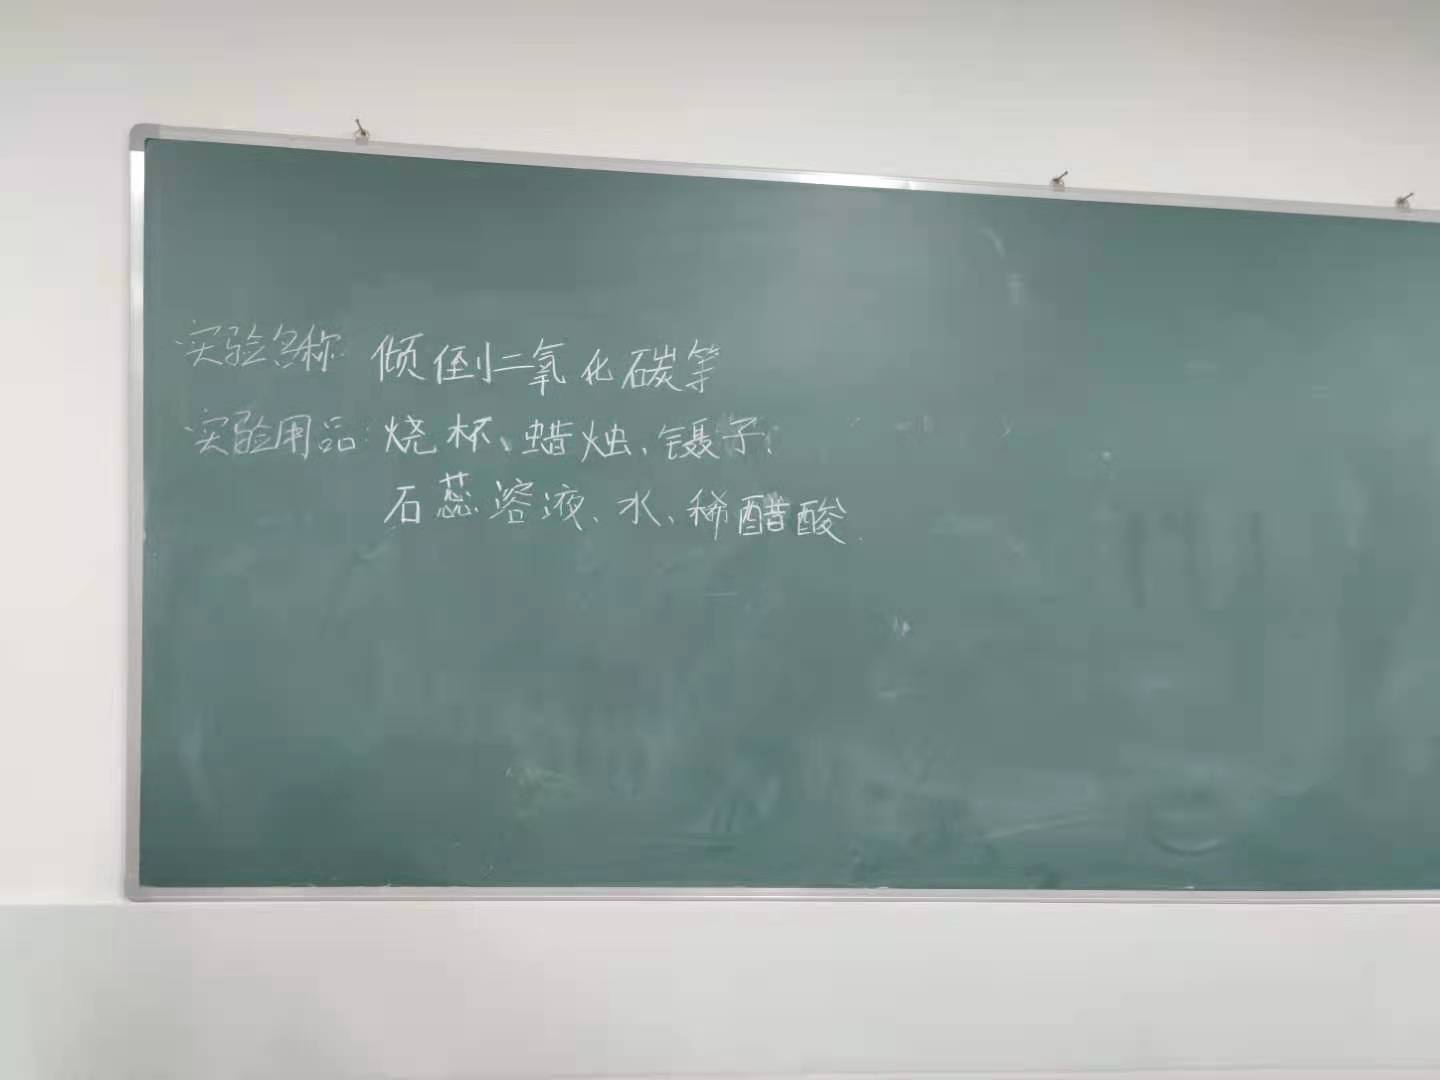 实验名称 倾倒二氧化碳等
实验用品:烧杯、蜡烛、镊子、
石蕊溶液、水、稀醋酸.